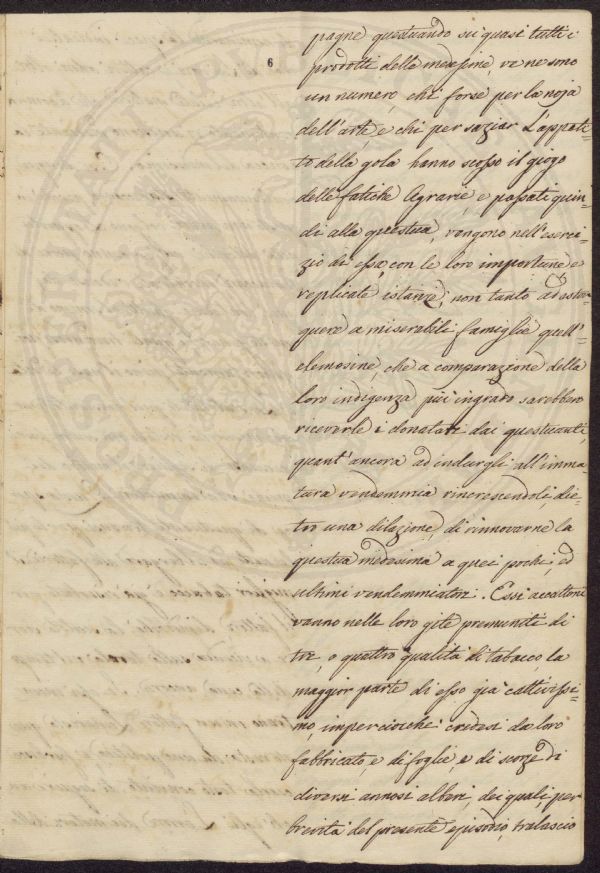 6
pagne questuando sù quasi tutti i
prodotti delle medesime, ve ne sono
un numero, chi forse per la noja
dell'arte, e chi per saziar l'appeti=
to della gola hanno scosso il giogo
delle fatiche Agrarie, e passati quin=
di alla questua, vengono nell'eserci=
zio di essa con le loro importune, e
replicate istanze, non tanto ad estor=
quere a miserabili famiglie quell'
elemosine, che a comparazione della
loro indigenza più in grado sarebbero
riceverle i donatari dai questuanti,
quant'ancora ad indurgli all'imma=
tura vendemmia rincrescendoli, die=
tro una dilazione, di rinnovarne la
questua medesima a quei pochi, ed
ultimi vendemmiatori. Essi accattoni
vanno nelle loro gite premuniti di
tre, o quattro qualità di tabacco, la
maggior parte di esso già cattivissi=
mo, imperciocchè credesi da loro
fabbricato, e di foglie, e di scorze di
diversi annosi alberi, dei quali, per
brevità del presente episodio, tralascio